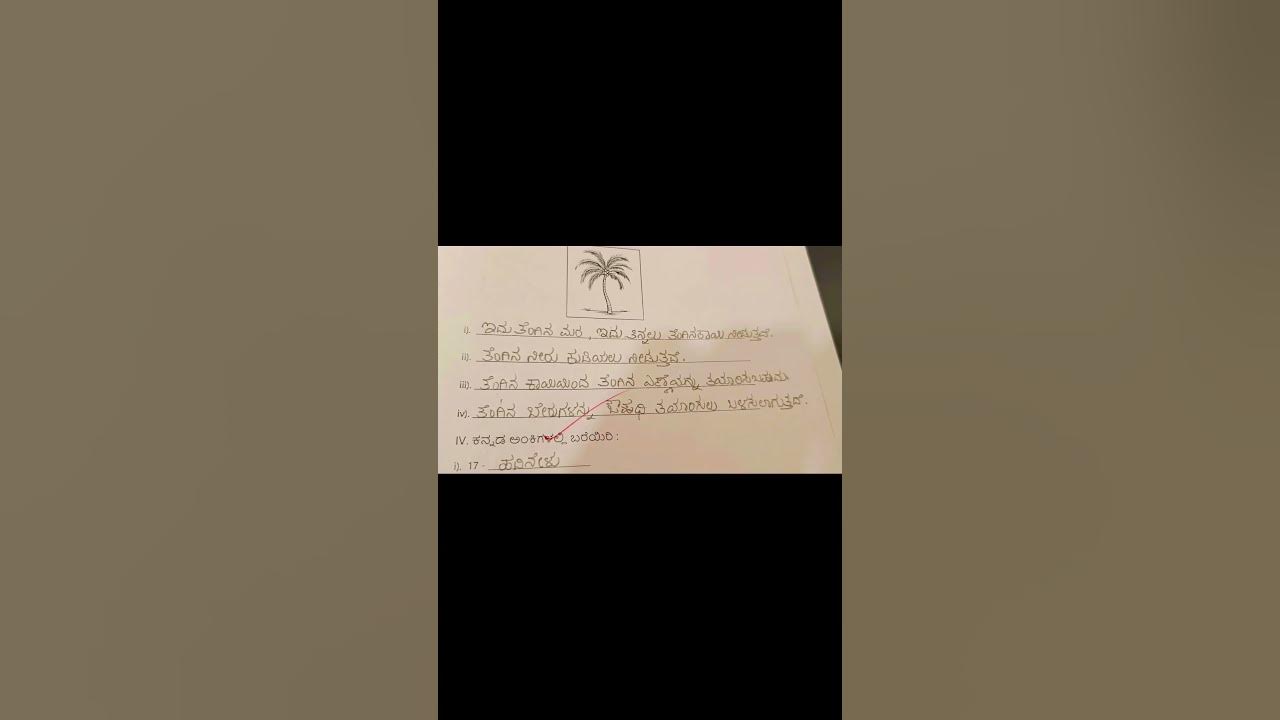 i). ಇದು ತೆಂಗಿನ ಮರ, ಇದು ತಿನ್ನಲು ತೆಂಗಿನಕಾಯಿ ನೀಡುತ್ತದೆ.
ii). ತೆಂಗಿನ ನೀರು ಕುಡಿಯಲು ನೀಡುತ್ತದೆ.
iii). ತೆಂಗಿನ ಕಾಯಿಯಿಂದ ತೆಂಗಿನ ಎಣ್ಣೆಯನ್ನು ತಯಾರಿಸಬಹುದು
iv). ತೆಂಗಿನ ಬೇರುಗಳನ್ನು ಔಷಧಿ ತಯಾರಿಸಲು ಬಳಸಲಾಗುತ್ತದೆ.
IV. ಕನ್ನಡ ಅಂಕಿಗಳಲ್ಲಿ ಬರೆಯಿರಿ :
i). 17 - ಹದಿನೇಳು